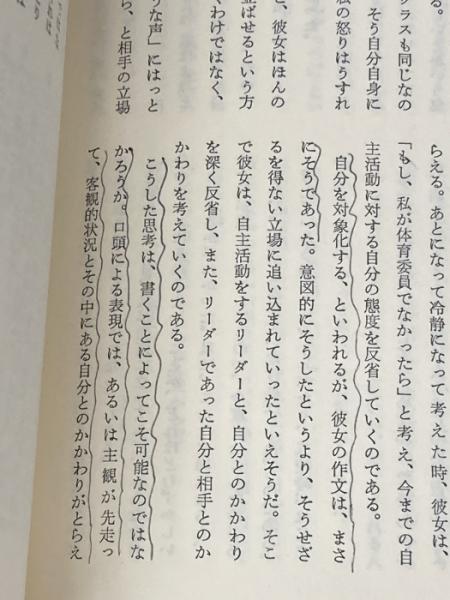 る。
クラスも同じなの
そう自分自身に
私の怒りはうすれ
と、彼女はほんの
並ばせるという方
くわけではなく、
うな声」にはっと
ら、と相手の立場
らえる。あとになって冷静になって考えた時、彼女は、
「もし、私が体育委員でなかったら」と考え、今までの自
主活動に対する自分の態度を反省していくのである。
自分を対象化する、といわれるが、彼女の作文は、まさ
にそうであった。意図的にそうしたというより、そうせざ
るを得ない立場に追い込まれていったといえそうだ。そこ
で彼女は、自主活動をするリーダーと、自分とのかかわり
を深く反省し、また、リーダーであった自分と相手とのか
かわりを考えていくのである。
こうした思考は、書くことによってこそ可能なのではな
かろうか。口頭による表現では、あるいは主観が先走っ
て、客観的状況とその中にある自分とのかかわりがとらえ